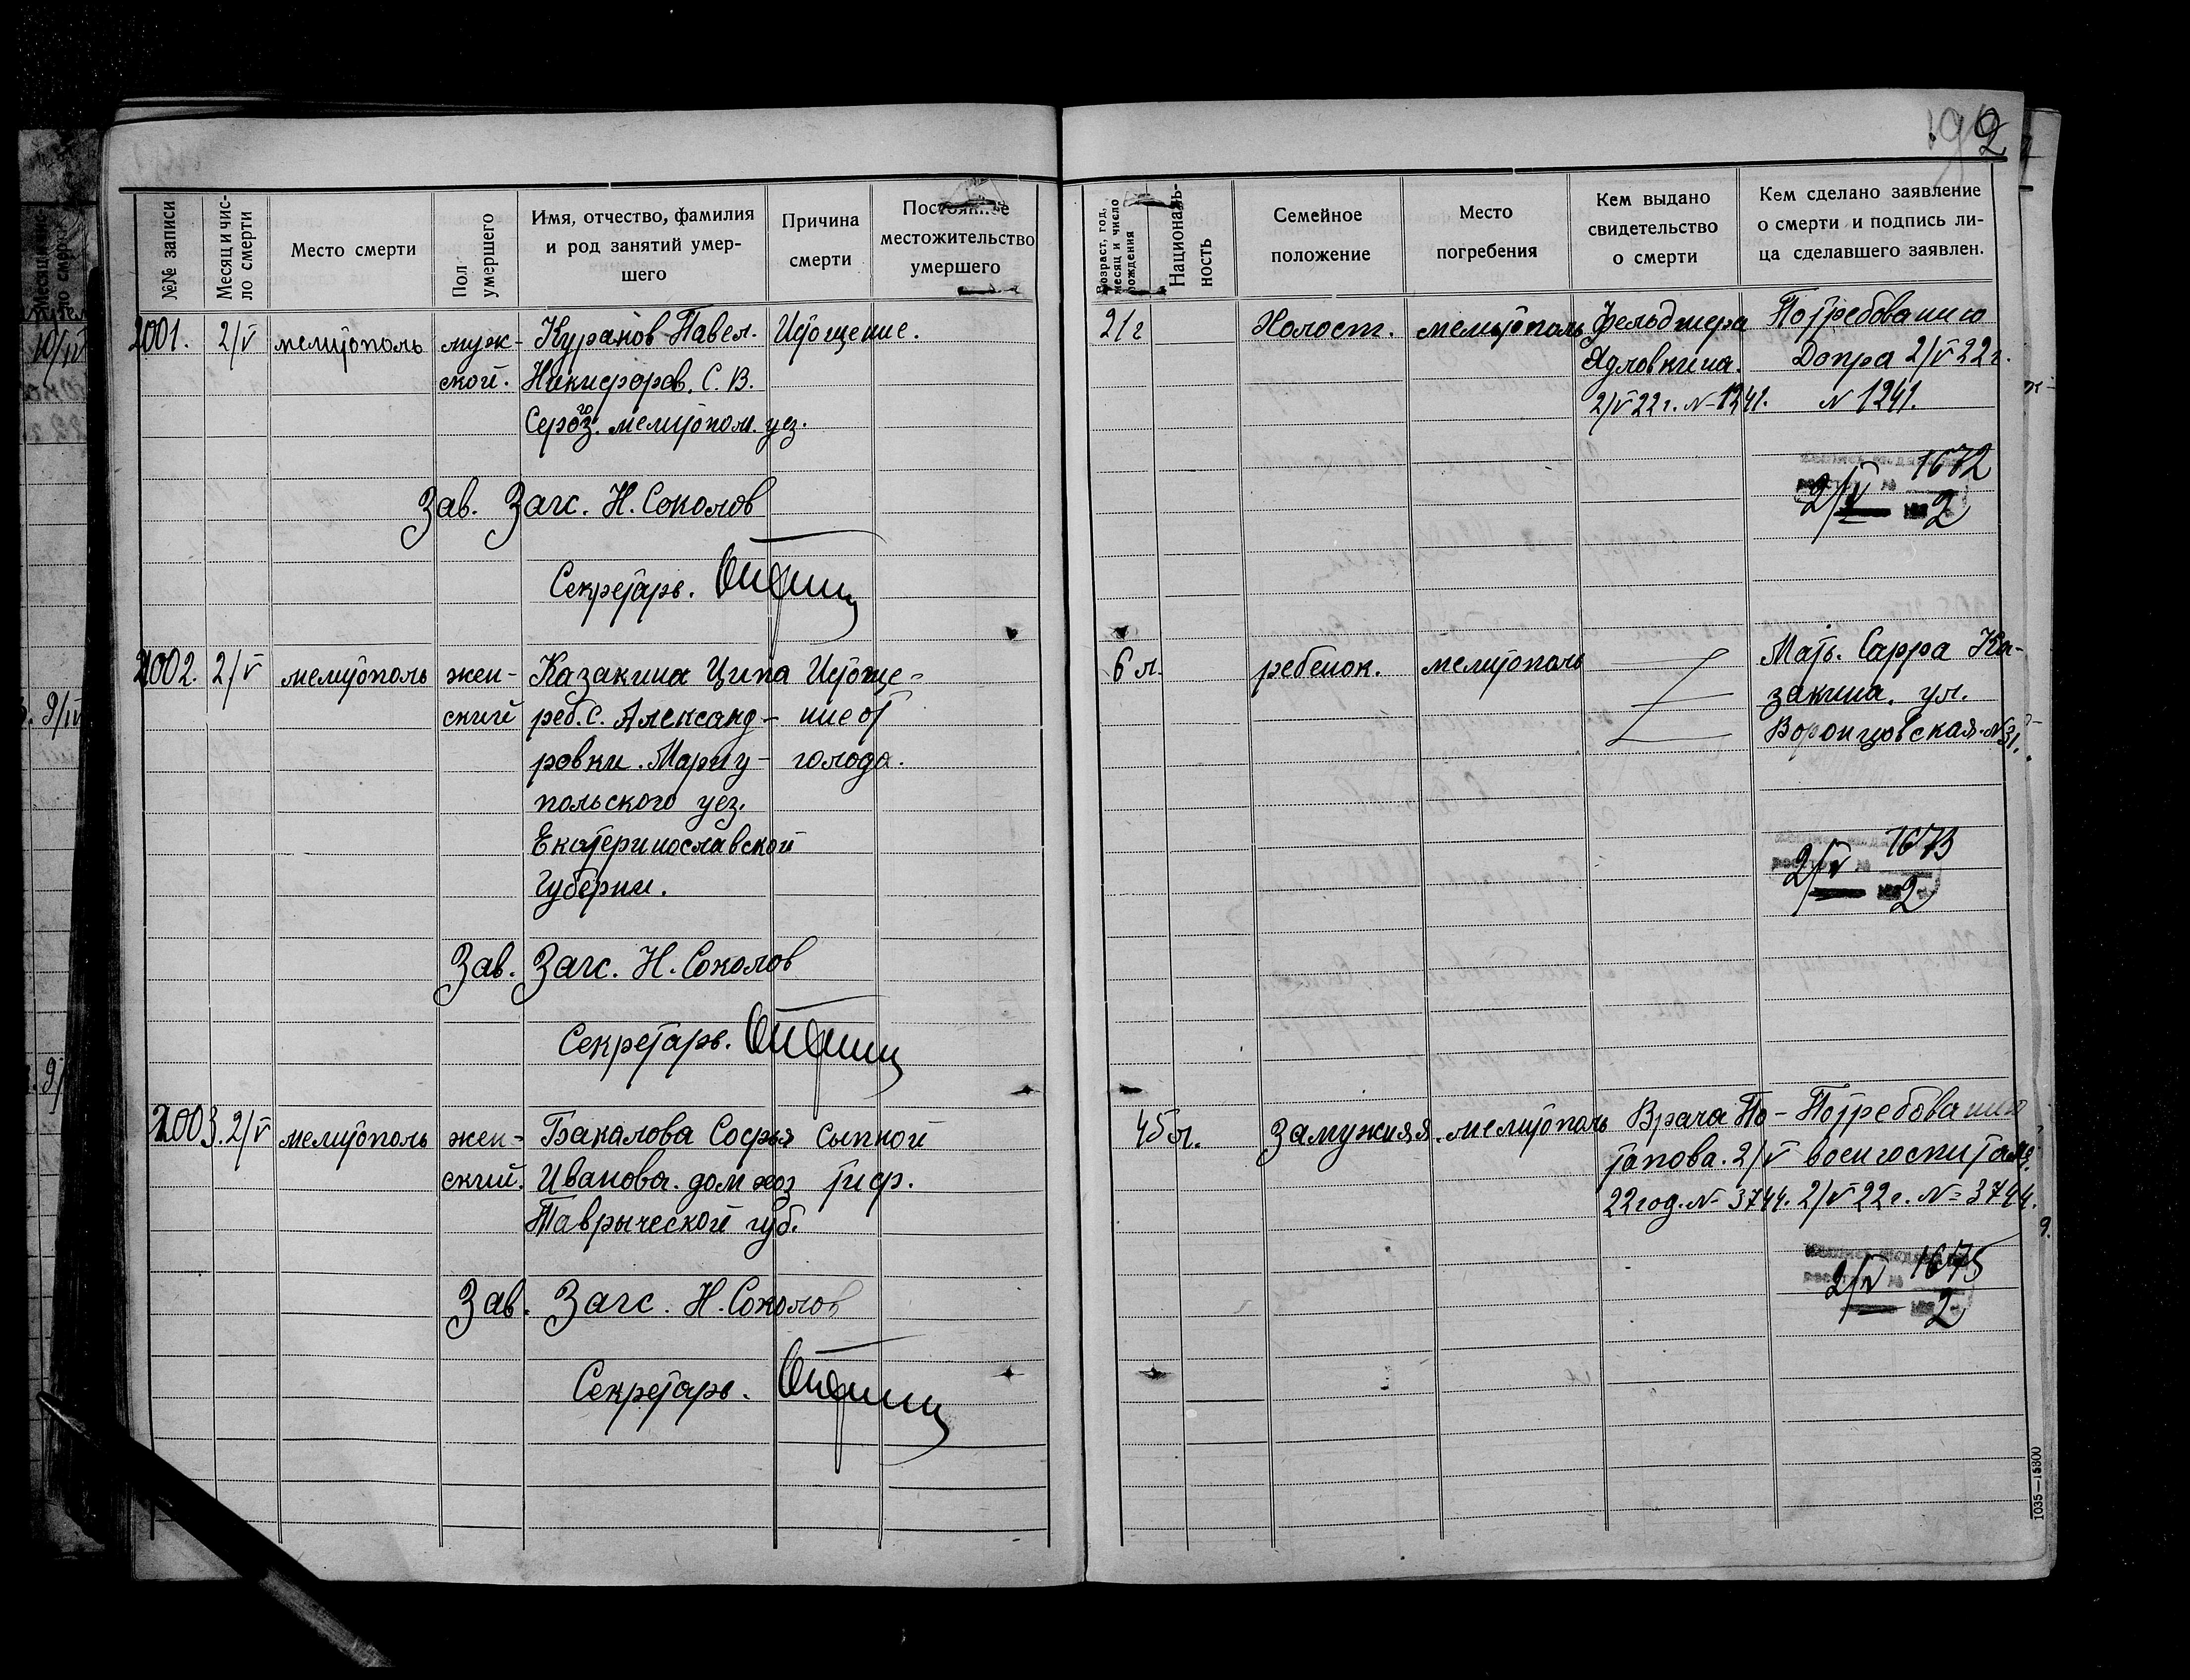 2
№№ записи
Месяц и чис-
ло смерти
Место смерти
Пол
умершего
Имя, отчество, фамилия
и род занятий умер-
шего
Причина
смерти
Постоянное
местожительство
умершего
Возраст, год,
месяц и число
рождения
Националь-
ность
Семейное
положение
Место
погребения
Кем выдано
свидетельство
о смерти
Кем сделано заявление
о смерти и подпись ли-
ца сделавшего заявлен.
2001. 2/V мелитополь муж-
ской.
Куранов Павел.
Никифоров. С. В.
Серогоз. мелитопол. уез.
Истощение.
21 г Холост. мелитополь
Фельдшера
Ядловкина.
2/V 22 г. № 1241.
По требованию
Допра 2/V 22 г.
№ 1241.
1672
2/V 2
Зав. Загс. Н. Соколов
Секретарь.
2002. 2/V мелитополь жен-
ский
Казакина Ципа
реб. с. Александ-
ровки. Мариу-
польского уез.
Екатеринославской
Губернии.
Истоще-
ние от
голода.
6 л. ребенок. мелитополь
Мать. Сарра Ка-
закина. ул.
Воронцовская. №31.
1673
2/V 2
Зав. Загс. Н. Соколов
Секретарь.
2003. 2/V мелитополь жен-
ский.
Бакалова Софья
Иванова. дом хоз
Таврической губ.
Сыпной
тиф.
45 л. Замужняя. мелитополь
Врача По-
тапова. 2/V
22 год. № 3744.
По требованию
воен госпиталя.
2/V 22 г. № 3744.
1675
2/V 2
Зав. Загс. Н. Соколов
Секретарь.
1035—15300